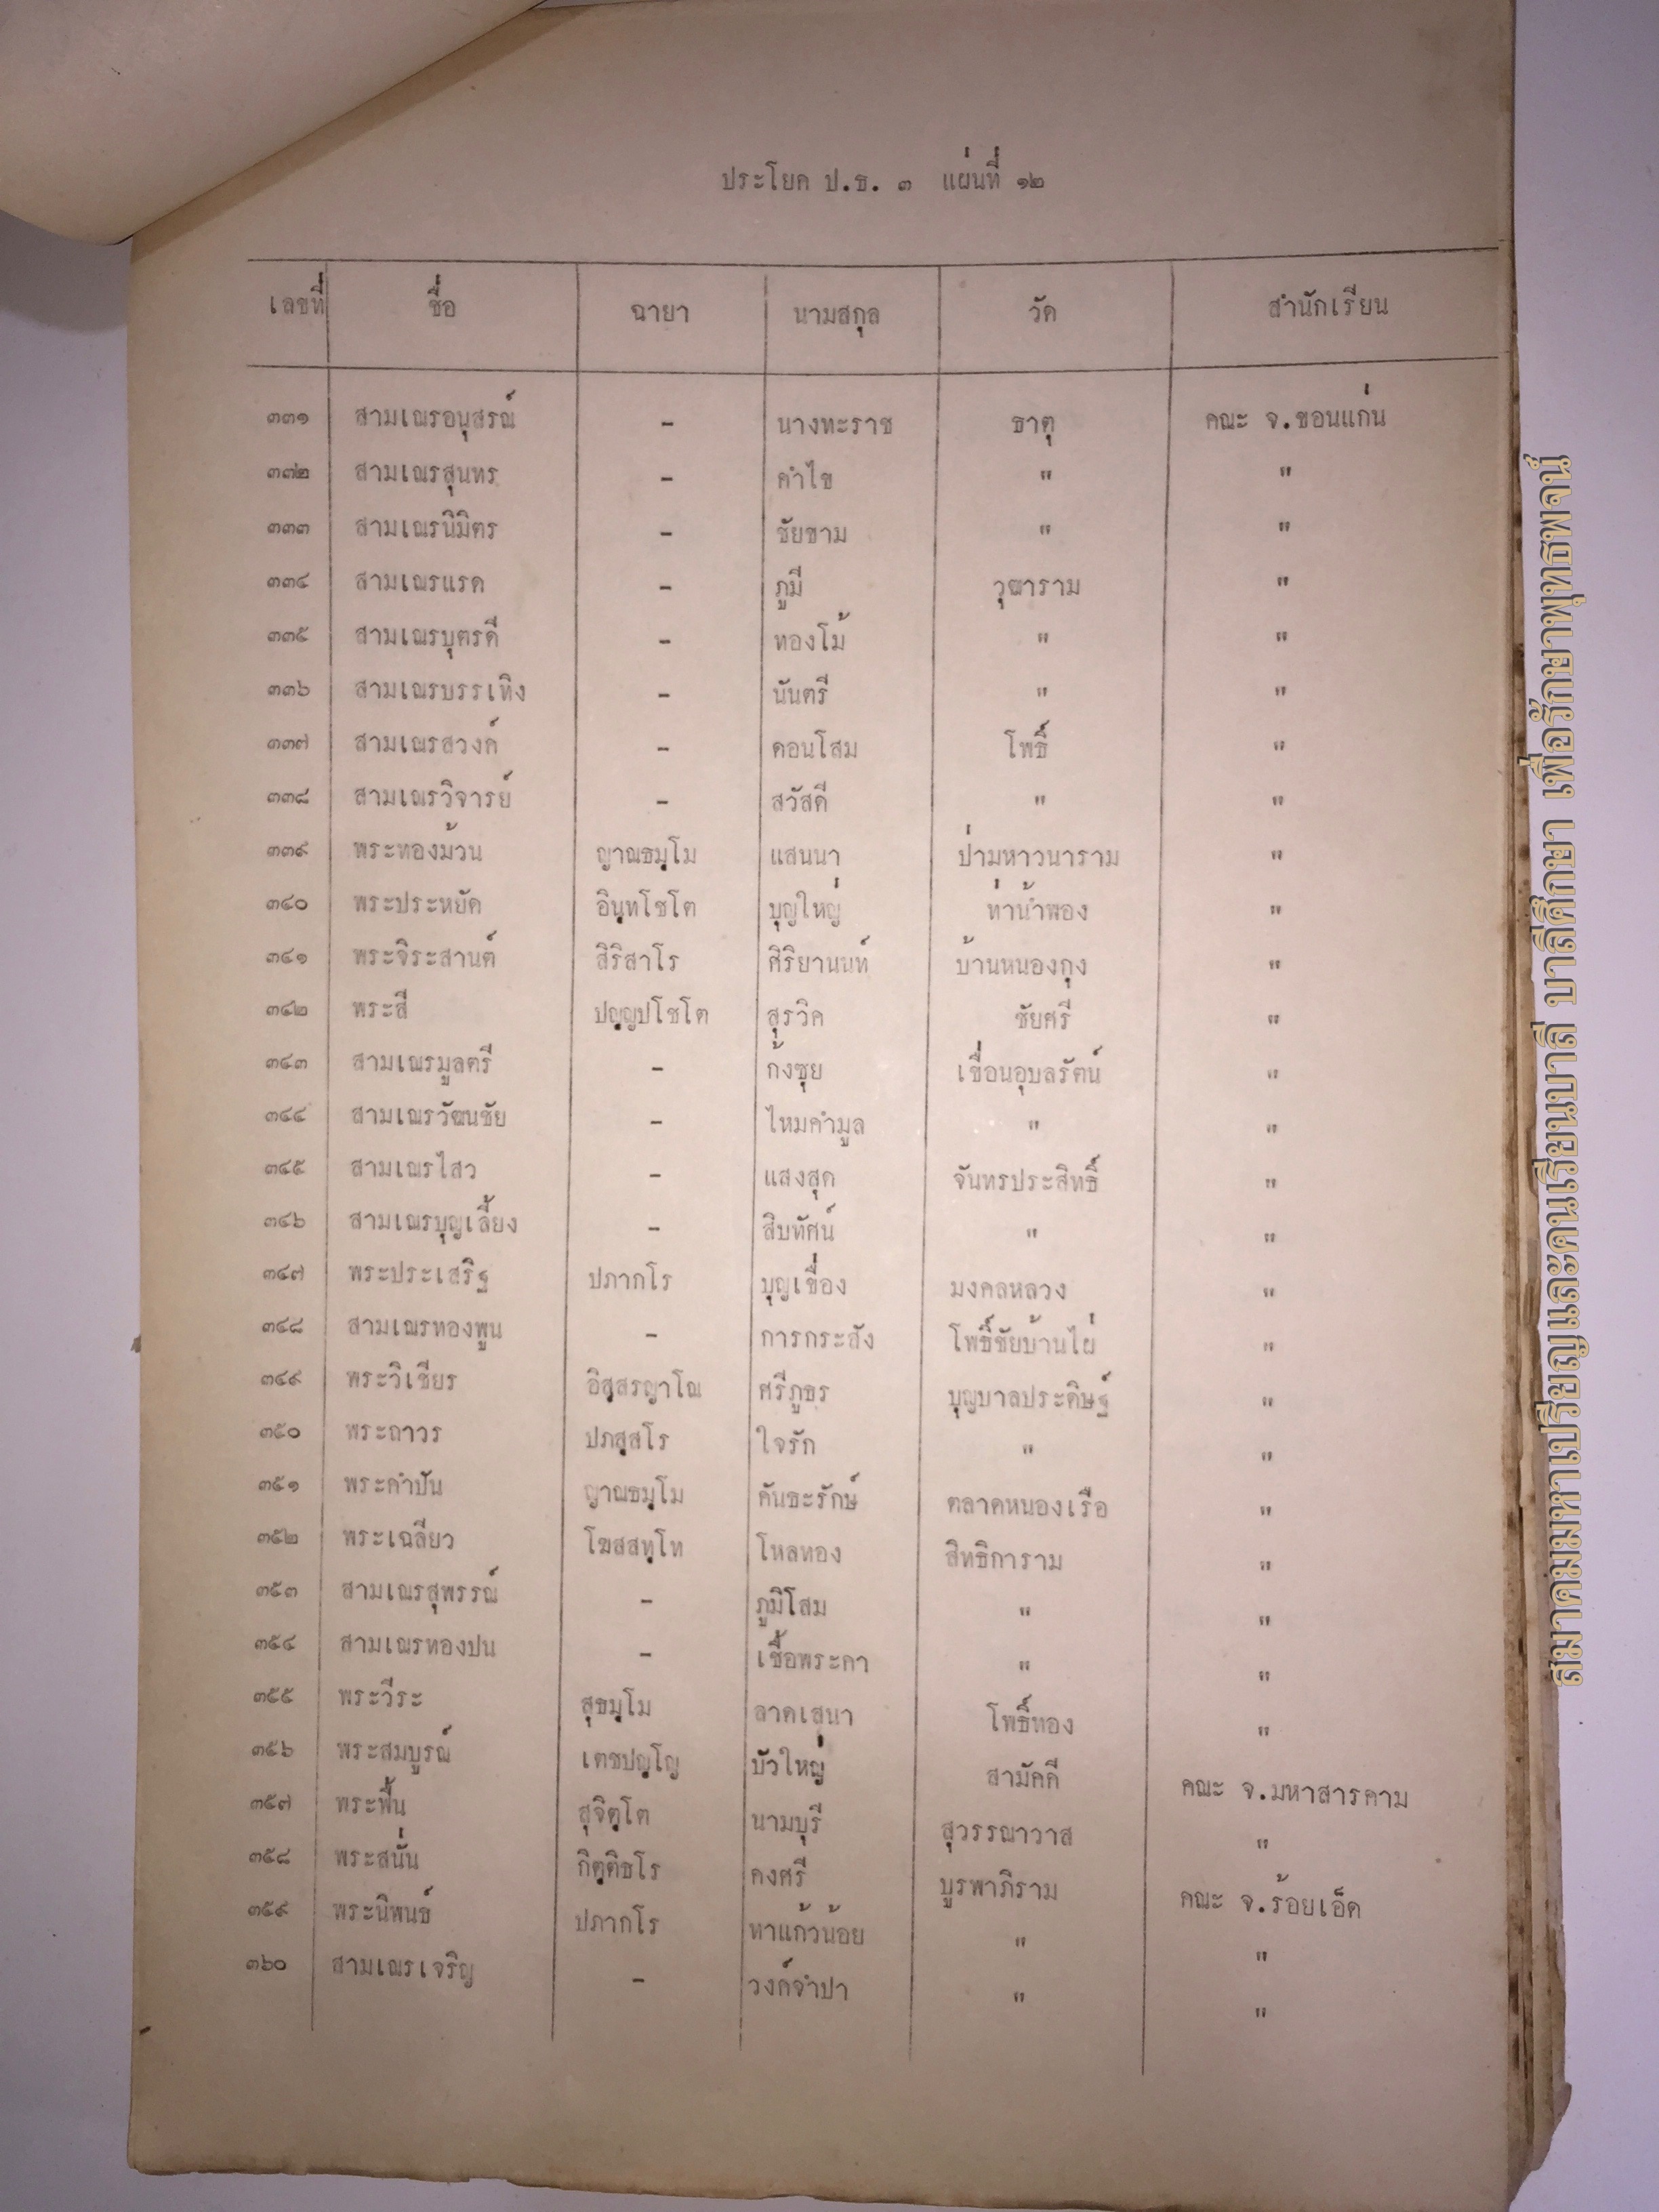 ประโยค ป.ธ. ๓ แผ่นที่ ๑๒
เลขที่ ชื่อ ฉายา นามสกุล วัด สำนักเรียน
๓๓๑ สามเณรอนุสรณ์ - นางทะราช ธาตุ คณะ จ.ขอนแก่น
๓๓๒ สามเณรสุนทร - คำไข " "
๓๓๓ สามเณรนิมิตร - ชัยขาม " "
๓๓๔ สามเณรแรด - ภูมี วุฒาราม "
๓๓๕ สามเณรบุตรดี - ทองโม้ " "
๓๓๖ สามเณรบรรเทิง - นันตรี " "
๓๓๗ สามเณรสวงค์ - ดอนโสม โพธิ์ "
๓๓๘ สามเณรวิจารย์ - สวัสดี " "
๓๓๙ พระทองม้วน ญาณธมฺโม แสนนา ป่ามหาวนาราม "
๓๔๐ พระประหยัด อินฺทโชโต บุญใหญ่ ท่าน้ำพอง "
๓๔๑ พระจิระสานต์ สิริสาโร ศิริยานนท์ บ้านหนองกุง "
๓๔๒ พระสี ปญฺญปโชโต สุรวิค ชัยศรี "
๓๔๓ สามเณรมูลตรี - ก้งซุย เขื่อนอุบลรัตน์ "
๓๔๔ สามเณรวัฒนชัย - ไหมคำมูล " "
๓๔๕ สามเณรไสว - แสงสุด จันทรประสิทธิ์ "
๓๔๖ สามเณรบุญเลี้ยง - สิบทัศน์ " "
๓๔๗ พระประเสริฐ ปภากโร บุญเขื่อง มงคลหลวง "
๓๔๘ สามเณรทองพูน - การกระสัง โพธิ์ชัยบ้านไผ่ "
๓๔๙ พระวิเชียร อิสฺสรญาโณ ศรีภูธร บุญบาลประดิษฐ์ "
๓๕๐ พระถาวร ปภสฺสโร ใจรัก " "
๓๕๑ พระคำปัน ญาณธมฺโม คันธะรักษ์ ตลาดหนองเรือ "
๓๕๒ พระเฉลียว โฆสสทฺโท โหลทอง สิทธิการาม "
๓๕๓ สามเณรสุพรรณ์ - ภูมิโสม " "
๓๕๔ สามเณรทองปน - เชื้อพระคา " "
๓๕๕ พระวีระ สุธมฺโม ลาดเสนา โพธิ์ทอง "
๓๕๖ พระสมบูรณ์ เตชปญฺโญ บัวใหญ่ สามัคคี คณะ จ.มหาสารคาม
๓๕๗ พระพื้น สุจิตฺโต นามบุรี สุวรรณาวาส "
๓๕๘ พระสนั่น กิตฺติธโร คงศรี บูรพาภิราม คณะ จ.ร้อยเอ็ด
๓๕๙ พระนิพนธ์ ปภากโร หาแก้วน้อย " "
๓๖๐ สามเณรเจริญ - วงค์จำปา " "
สมาคมมหาเปรียญและคนเรียนบาลี บาลีศึกษา เพื่อรักษาพุทธพจน์